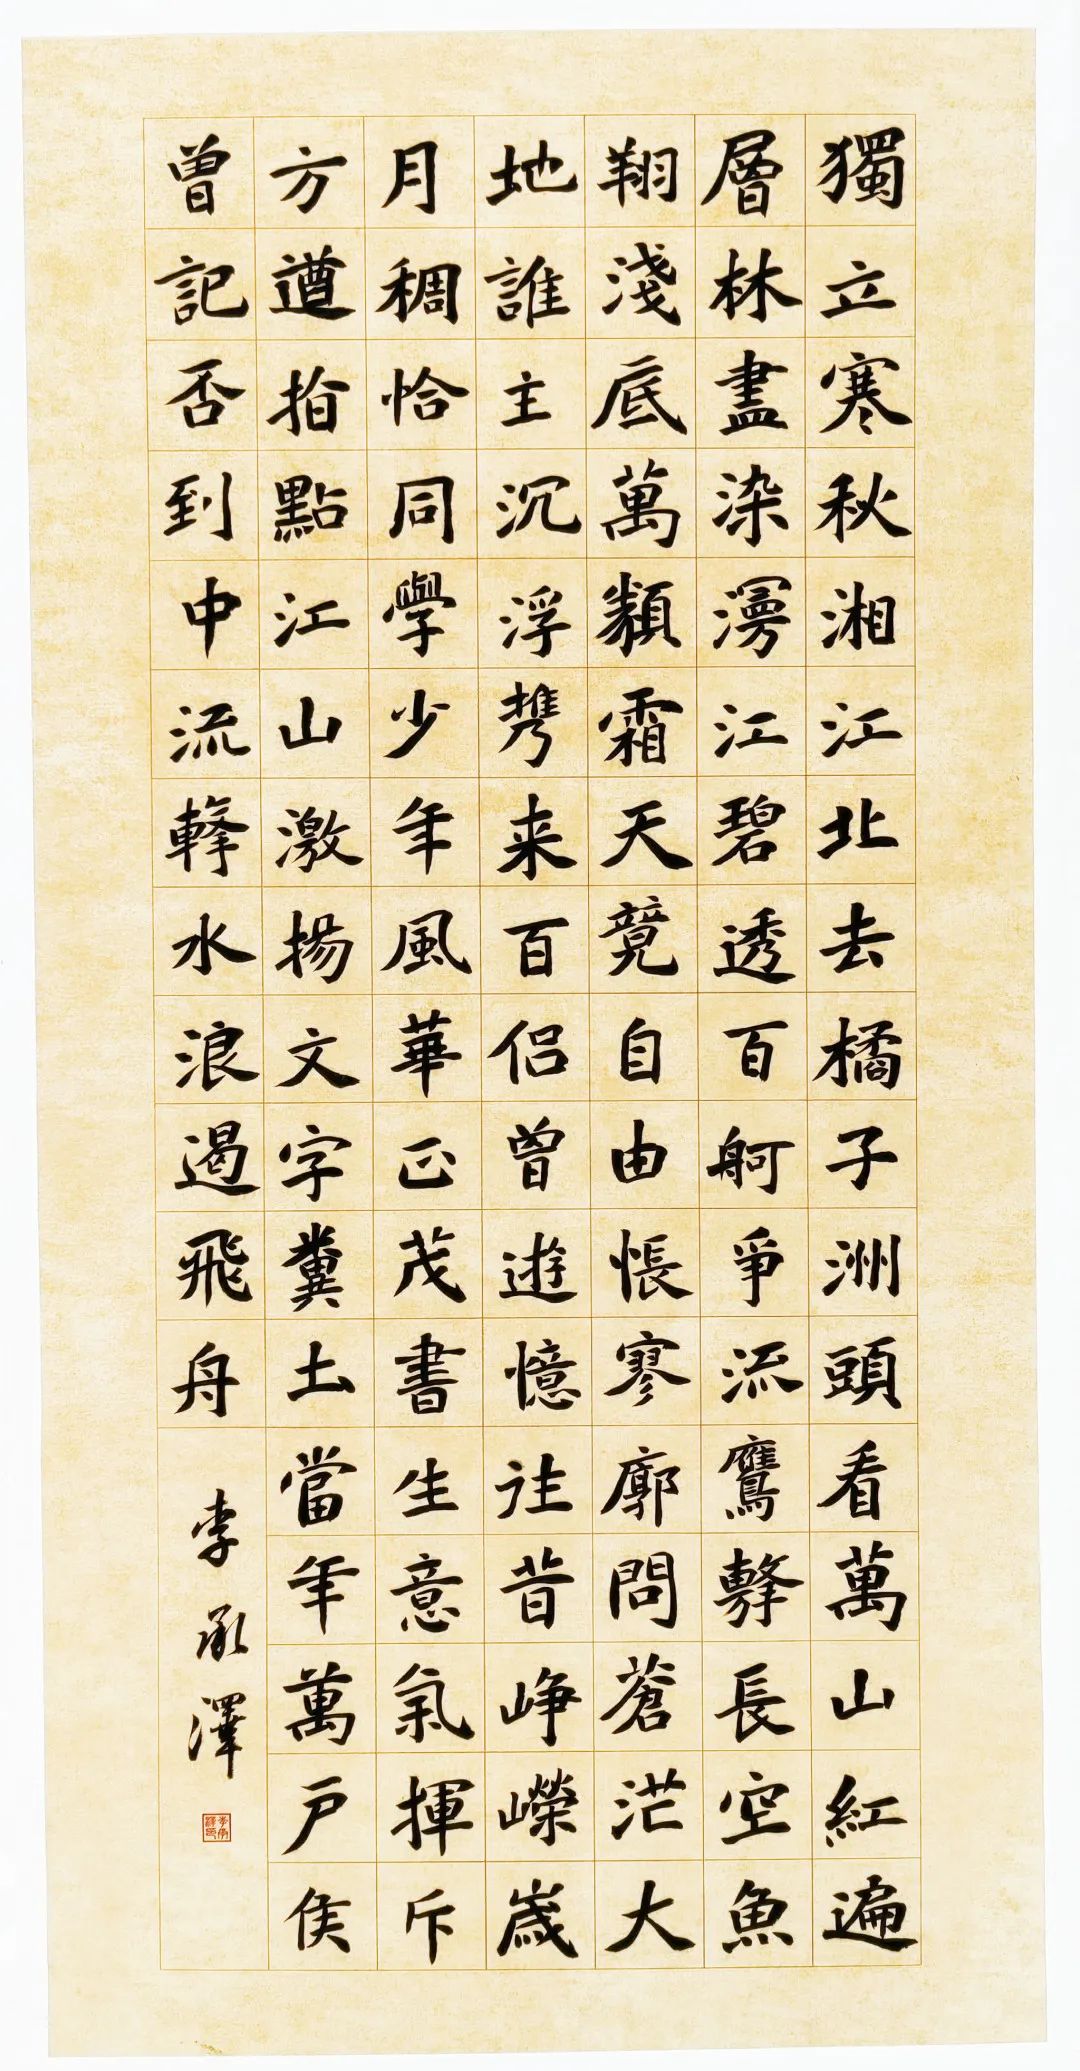 獨立寒秋湘江北去橘子洲頭看萬山紅遍
層林盡染漫江碧透百舸爭流鷹擊長空魚
翔淺底萬類霜天竟自由悵寥廓問蒼茫大
地誰主沉浮携来百侣曾遊憶往昔崢嶸歲
月稠恰同學少年風華正茂書生意氣揮斥
方遒指點江山激揚文字糞土當年萬户侯
曾記否到中流擊水浪遏飛舟
李承澤